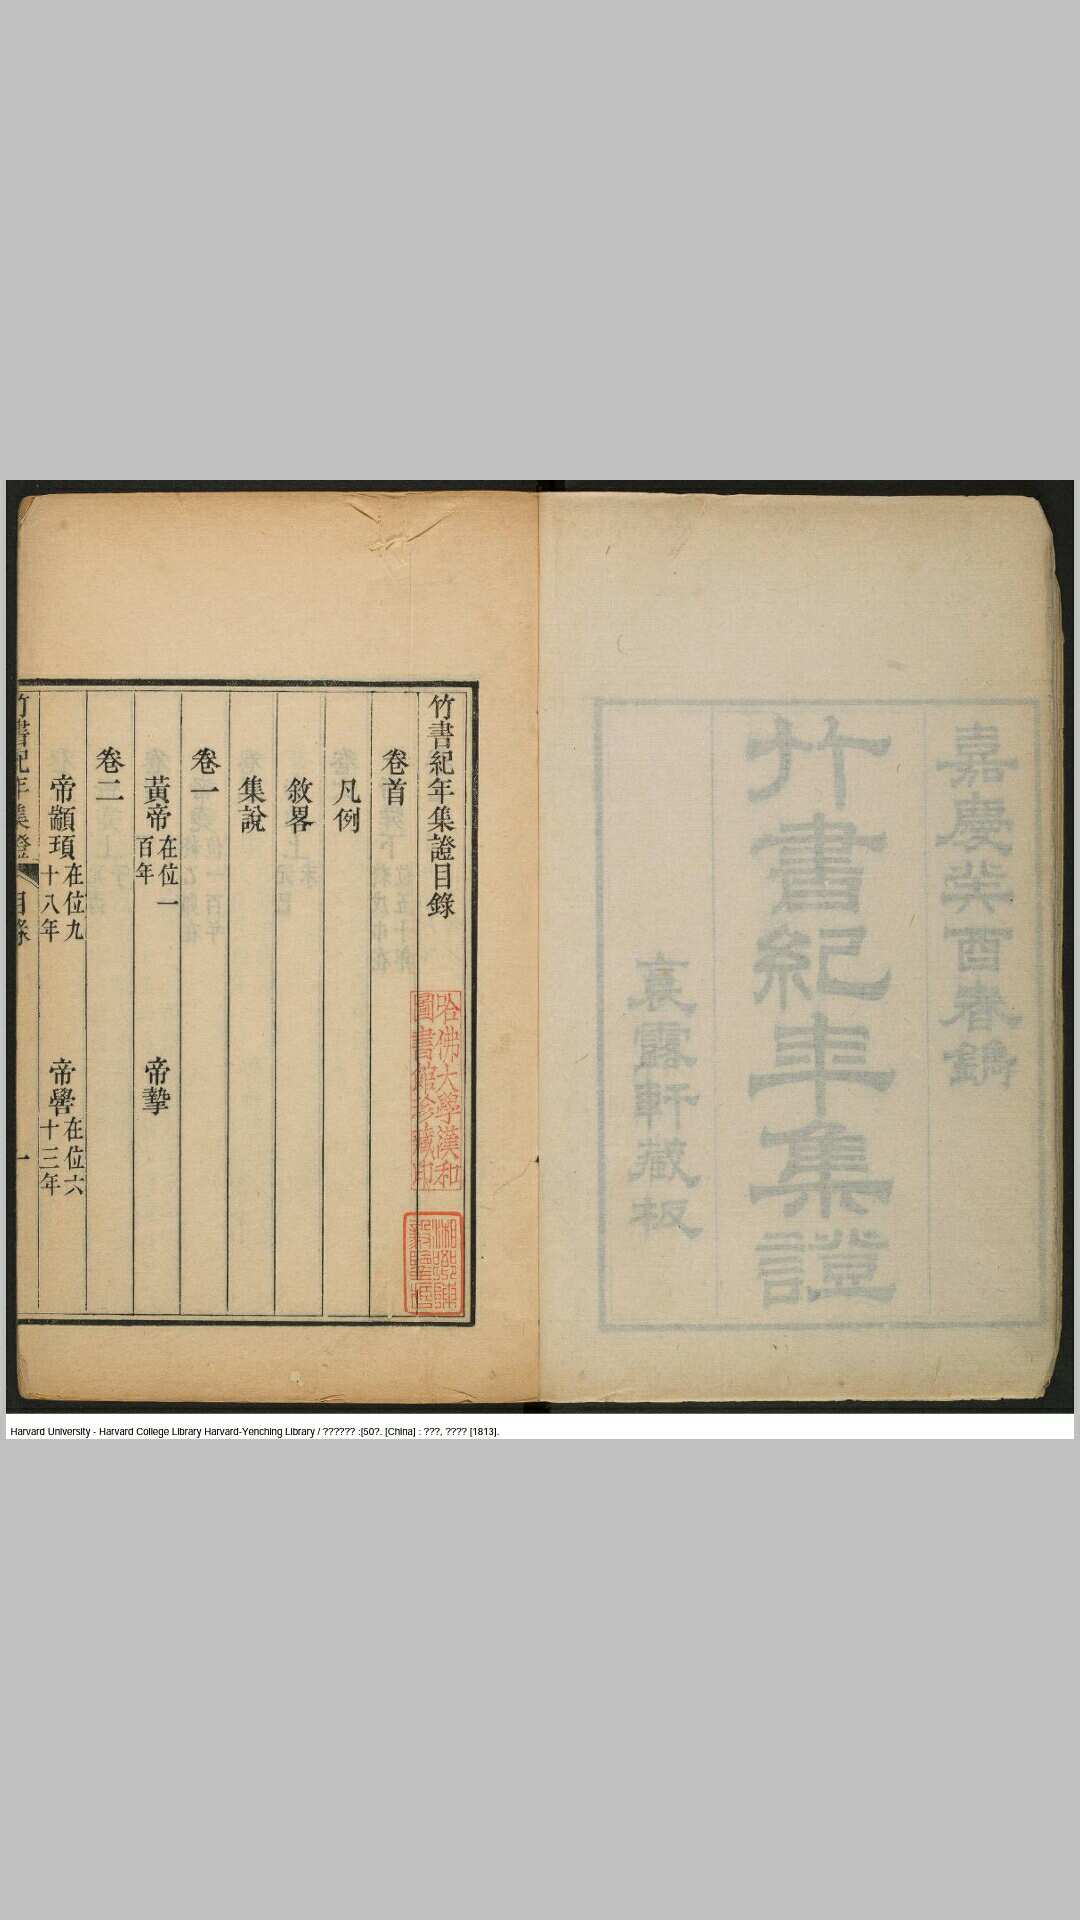 嘉慶癸酉春鐫
竹書紀年集證
裛露軒藏板
竹書紀年集證目錄
卷首
凡例
敘畧
集說
卷一
黃帝在位一百年 帝摯
卷二
帝顓頊在位九十八年 帝嚳在位六十三年
竹書紀年集證 目錄 一
哈佛大學漢和
圖書館珍藏印
Harvard University - Harvard College Library Harvard-Yenching Library / ?????? :[50?. [China] : ???, ???? [1813].